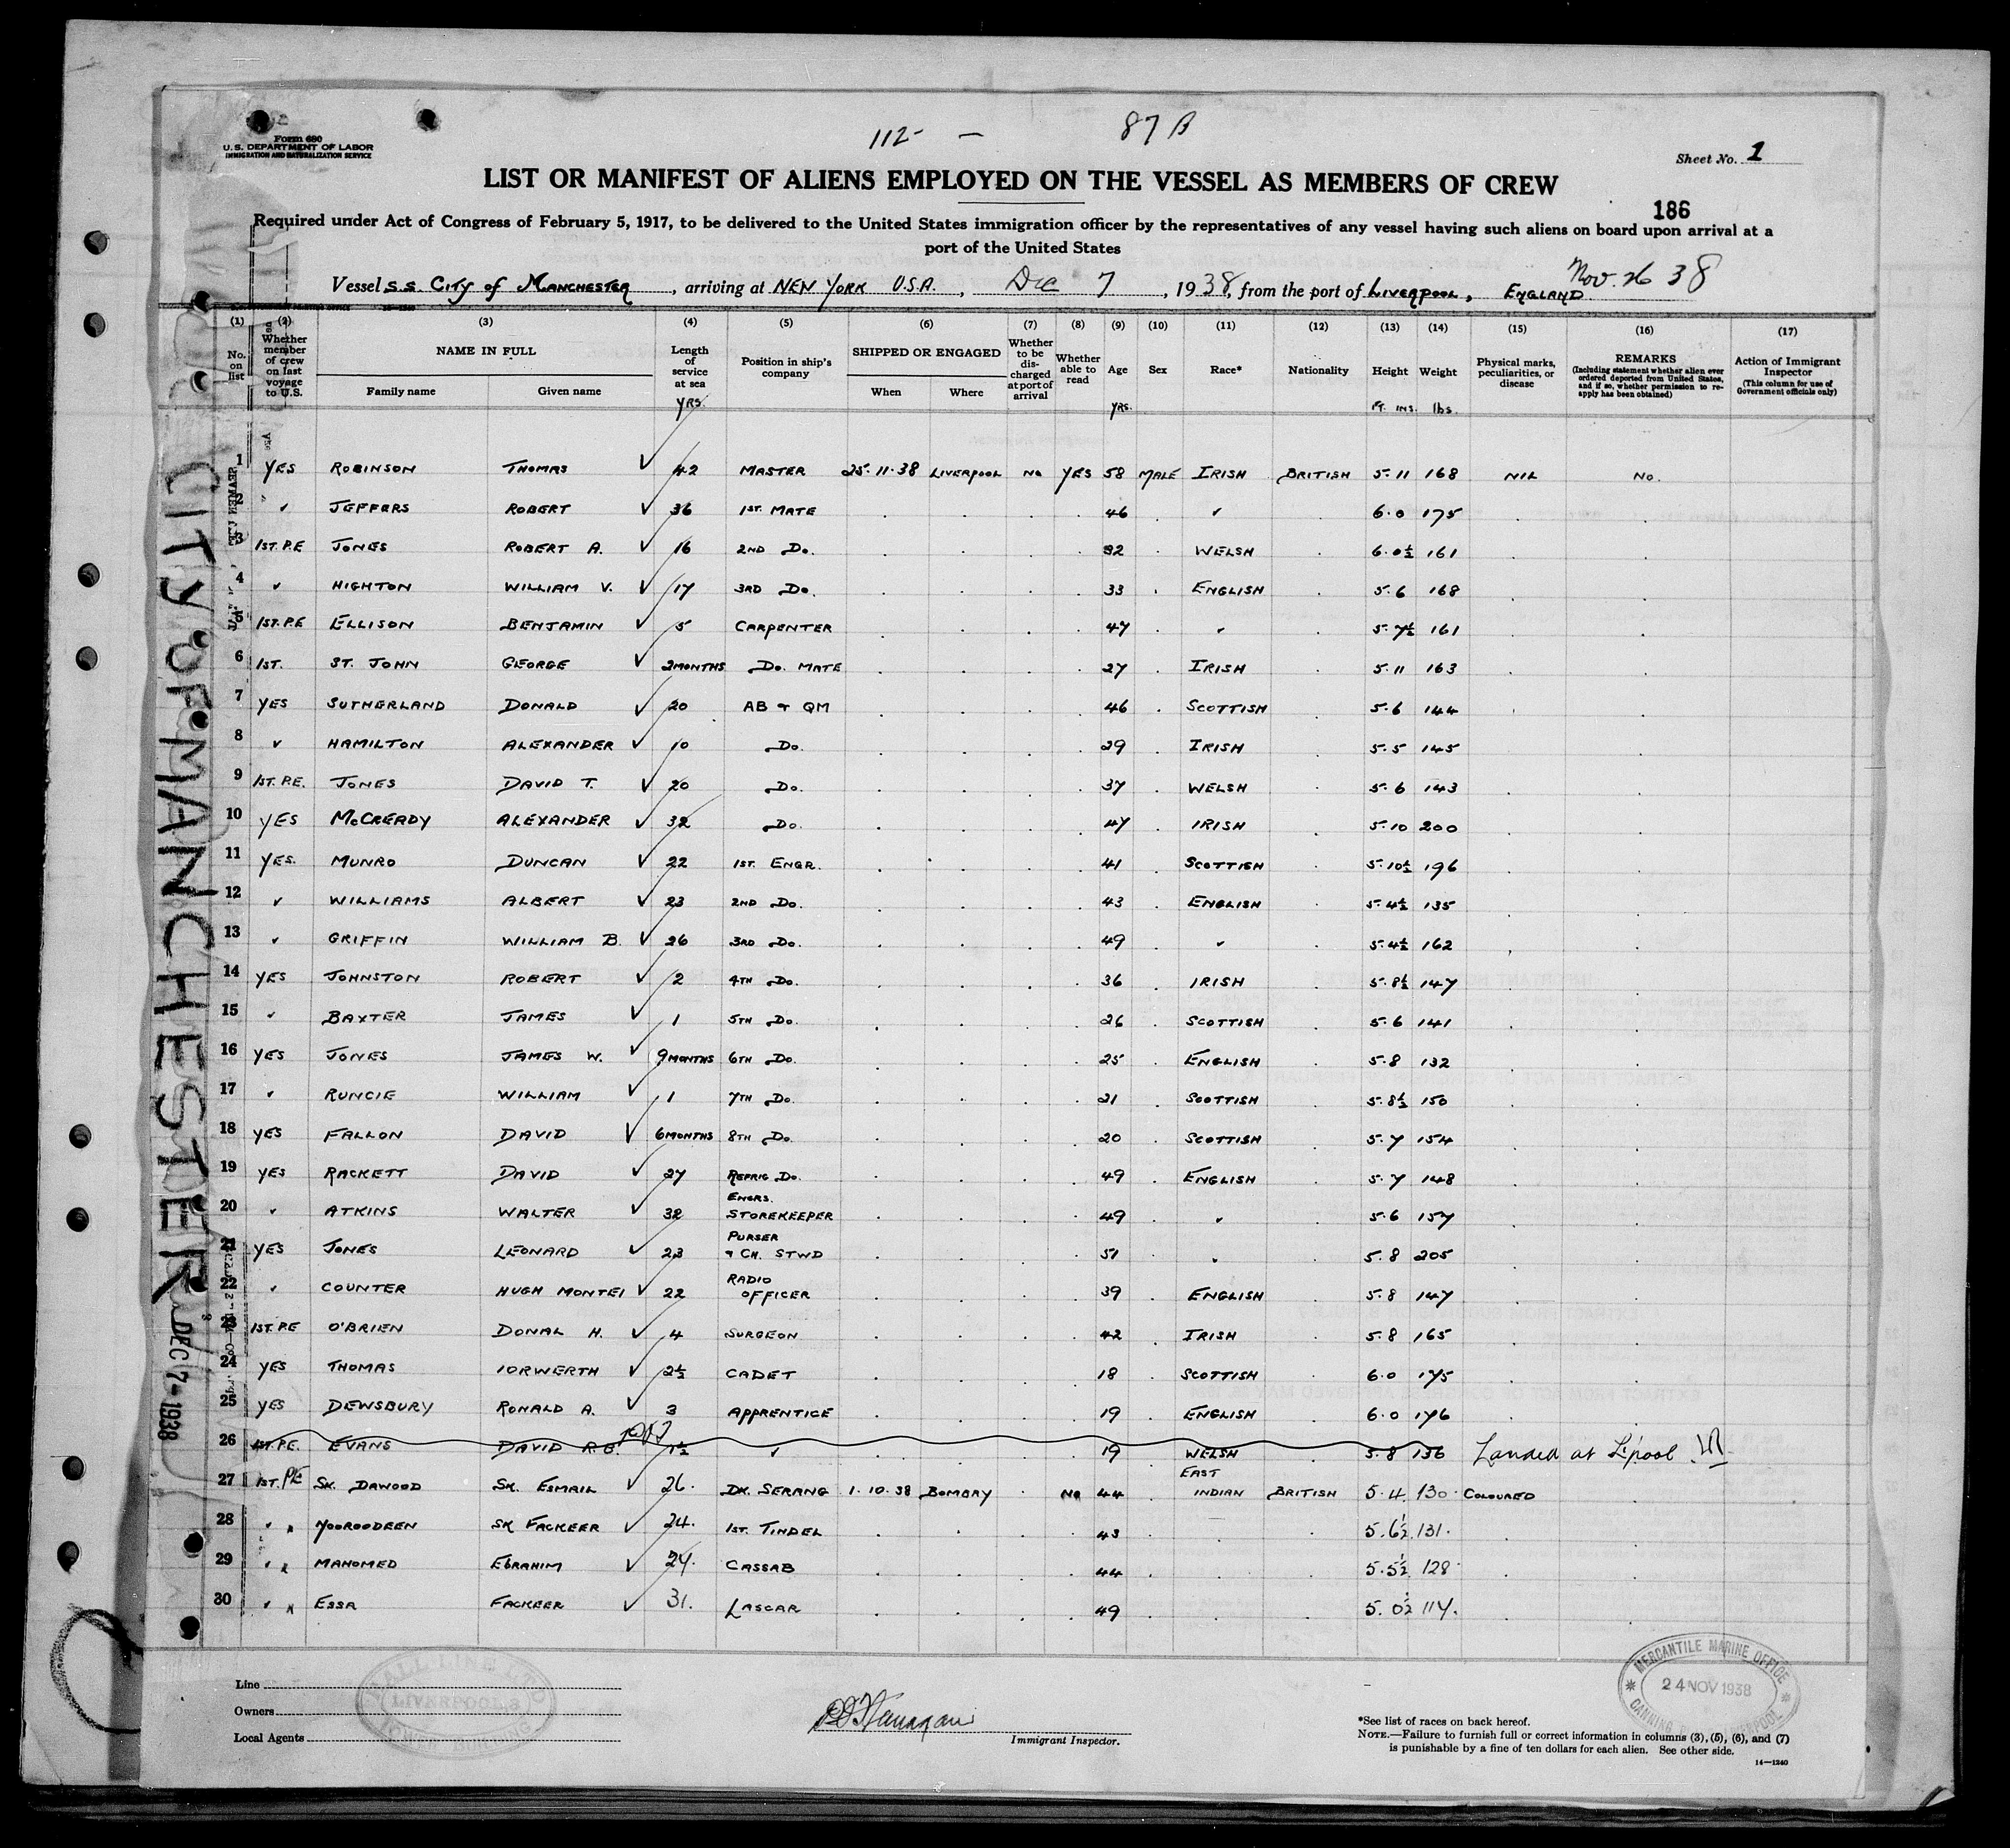 Form 680
U.S. DEPARTMENT OF LABOR
IMMIGRATION AND NATURALIZATION SERVICE
112- — 87 B
Sheet No. 1
LIST OR MANIFEST OF ALIENS EMPLOYED ON THE VESSEL AS MEMBERS OF CREW
186
Required under Act of Congress of February 5, 1917, to be delivered to the United States immigration officer by the representatives of any vessel having such aliens on board upon arrival at a
port of the United States
Nov. 26 38
Vessel S.S. CITY of MANCHESTER, arriving at NEW YORK U.S.A., Dec 7, 1938, from the port of LIVERPOOL, ENGLAND
(1) (2) (3) (4) (5) (6) (7) (8) (9) (10) (11) (12) (13) (14) (15) (16) (17)
No. on list
Whether member of crew on last voyage to U.S.
NAME IN FULL
Family name Given name
Length of service at sea
YRS.
Position in ship's company
SHIPPED OR ENGAGED
When Where
Whether to be discharged at port of arrival
Whether able to read
Age
YRS.
Sex
Race*
Nationality
Height
Ft. INS.
Weight
lbs.
Physical marks, peculiarities, or disease
REMARKS
(Including statement whether alien ever ordered deported from United States, and if so, whether permission to reapply has been obtained)
Action of Immigrant Inspector
(This column for use of Government officials only)
1 YES ROBINSON THOMAS ✓ 42 MASTER 25.11.38 LIVERPOOL NO YES 58 MALE IRISH BRITISH 5.11 168 NIL NO.
2 ✓ JEFFERS ROBERT ✓ 36 1ST. MATE . . . . 46 . ✓ . 6.0 175 . .
3 1ST. P.E JONES ROBERT A. ✓ 16 2ND DO. . . . . 32 . WELSH . 6.0½ 161 . .
4 ✓ HIGHTON WILLIAM V. ✓ 17 3RD DO. . . . . 33 . ENGLISH . 5.6 168 . .
5 1ST. P.E ELLISON BENJAMIN ✓ 5 CARPENTER . . . . 47 . ✓ . 5.7½ 161 . .
6 1ST. ST. JOHN GEORGE ✓ 2 MONTHS DO. MATE . . . . 27 . IRISH . 5.11 163 . .
7 YES SUTHERLAND DONALD ✓ 20 AB & QM . . . . 46 . SCOTTISH . 5.6 144 . .
8 ✓ HAMILTON ALEXANDER ✓ 10 DO. . . . . 29 . IRISH . 5.5 145 . .
9 1ST. P.E. JONES DAVID T. ✓ 20 DO. . . . . 37 . WELSH . 5.6 143 . .
10 YES McCREADY ALEXANDER ✓ 32 DO. . . . . 47 . IRISH . 5.10 200 . .
11 YES. MUNRO DUNCAN ✓ 22 1ST. ENGR. . . . . 41 . SCOTTISH . 5.10½ 196 . .
12 ✓ WILLIAMS ALBERT ✓ 23 2ND DO. . . . . 43 . ENGLISH . 5.4½ 135 . .
13 ✓ GRIFFIN WILLIAM B. ✓ 26 3RD DO. . . . . 49 . ✓ . 5.4½ 162 . .
14 YES JOHNSTON ROBERT ✓ 2 4TH DO. . . . . 36 . IRISH . 5.8½ 147 . .
15 ✓ BAXTER JAMES ✓ 1 5TH DO. . . . . 26 . SCOTTISH . 5.6 141 . .
16 YES JONES JAMES W. ✓ 9 MONTHS 6TH DO. . . . . 25 . ENGLISH . 5.8 132 . .
17 ✓ RUNCIE WILLIAM ✓ 1 7TH DO. . . . . 21 . SCOTTISH . 5.8½ 150 . .
18 YES FALLON DAVID ✓ 6 MONTHS 8TH DO. . . . . 20 . SCOTTISH . 5.7 154 . .
19 YES RACKETT DAVID ✓ 27 REFRIG DO. . . . . 49 . ENGLISH . 5.7 148 . .
20 ✓ ATKINS WALTER ✓ 32 ENGRS. STOREKEEPER . . . . 49 . ✓ . 5.6 157 . .
21 YES JONES LEONARD ✓ 23 PURSER & CH. STWD . . . . 51 . . . 5.8 205 . .
22 ✓ COUNTER HUGH MONTEI ✓ 22 RADIO OFFICER . . . . 39 . ENGLISH . 5.8 147 . .
23 1ST. P.E O'BRIEN DONAL H. ✓ 4 SURGEON . . . . 42 . IRISH . 5.8 165 . .
24 YES THOMAS IORWERTH ✓ 2½ CADET . . . . 18 . SCOTTISH . 6.0 175 . .
25 YES DEWSBURY RONALD A. ✓ 3 APPRENTICE . . . . 19 . ENGLISH . 6.0 176 . .
26 1ST. P.E. EVANS DAVID R.G. 1½ ✓ . . . . 19 WELSH . 5.8 136 Landed at L'pool
27 1ST. PE SK. DAWOOD SK. ESMAIL ✓ 26. DK. SERANG 1.10.38 BOMBAY . NO 44 EAST INDIAN BRITISH 5.4. 130. COLOURED
28 ✓ NOOROODEEN SK FACKEER ✓ 24. 1ST. TINDEL . . . . 43 . . . 5.6½ 131. . .
29 ✓ MAHOMED EBRAHIM ✓ 24. CASSAB . . . . 44 . . . 5.5½ 128. . .
30 ✓ ESSA FACKEER ✓ 31. LASCAR . . . . 49 . . . 5.0½ 114. . .
CITY OF MANCHESTER
DEC 7 - 1938
Line
Owners
Local Agents
HALL LINE LTD
LIVERPOOL, 3
TOWER BUILDING
Immigrant Inspector.
MERCANTILE MARINE OFFICE
24 NOV 1938
CANNING LIVERPOOL
*See list of races on back hereof.
NOTE.—Failure to furnish full or correct information in columns (3), (5), (6), and (7)
is punishable by a fine of ten dollars for each alien. See other side.
14—1240